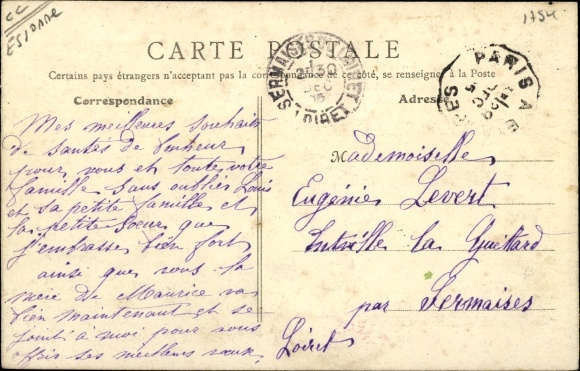 CC
ESSONNE
1754
CARTE POSTALE
Certains pays étrangers n'acceptent pas la correspondance de ce côté, se renseigner à la Poste
Correspondance
Mes meilleurs souhaits
de santés de bonheur
pour vous et toute votre
famille sans oublier Louis
et sa petite famille et
la petite soeur que
j'embrasse bien fort
ainsi que vous la
mère de Maurice va
bien maintenant et se
joint à moi pour vous
offrir ses meilleurs voeux
SERMAISES DU LOIRET
30
DEC
LOIRET
PARIS A
Adresse
Mademoiselle
Eugénie Levert
Intville la Guétard
par Sermaises
Loiret